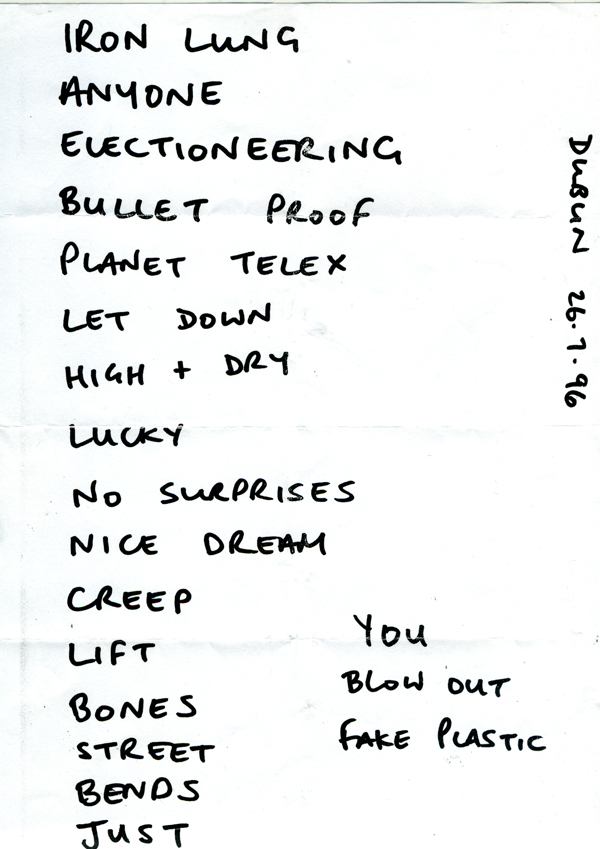 IRON LUNG
ANYONE
ELECTIONEERING
BULLET PROOF
PLANET TELEX
LET DOWN
HIGH + DRY
LUCKY
NO SURPRISES
NICE DREAM
CREEP
LIFT
BONES
STREET
BENDS
JUST
YOU
BLOW OUT
FAKE PLASTIC
DUBLIN 26.7.96